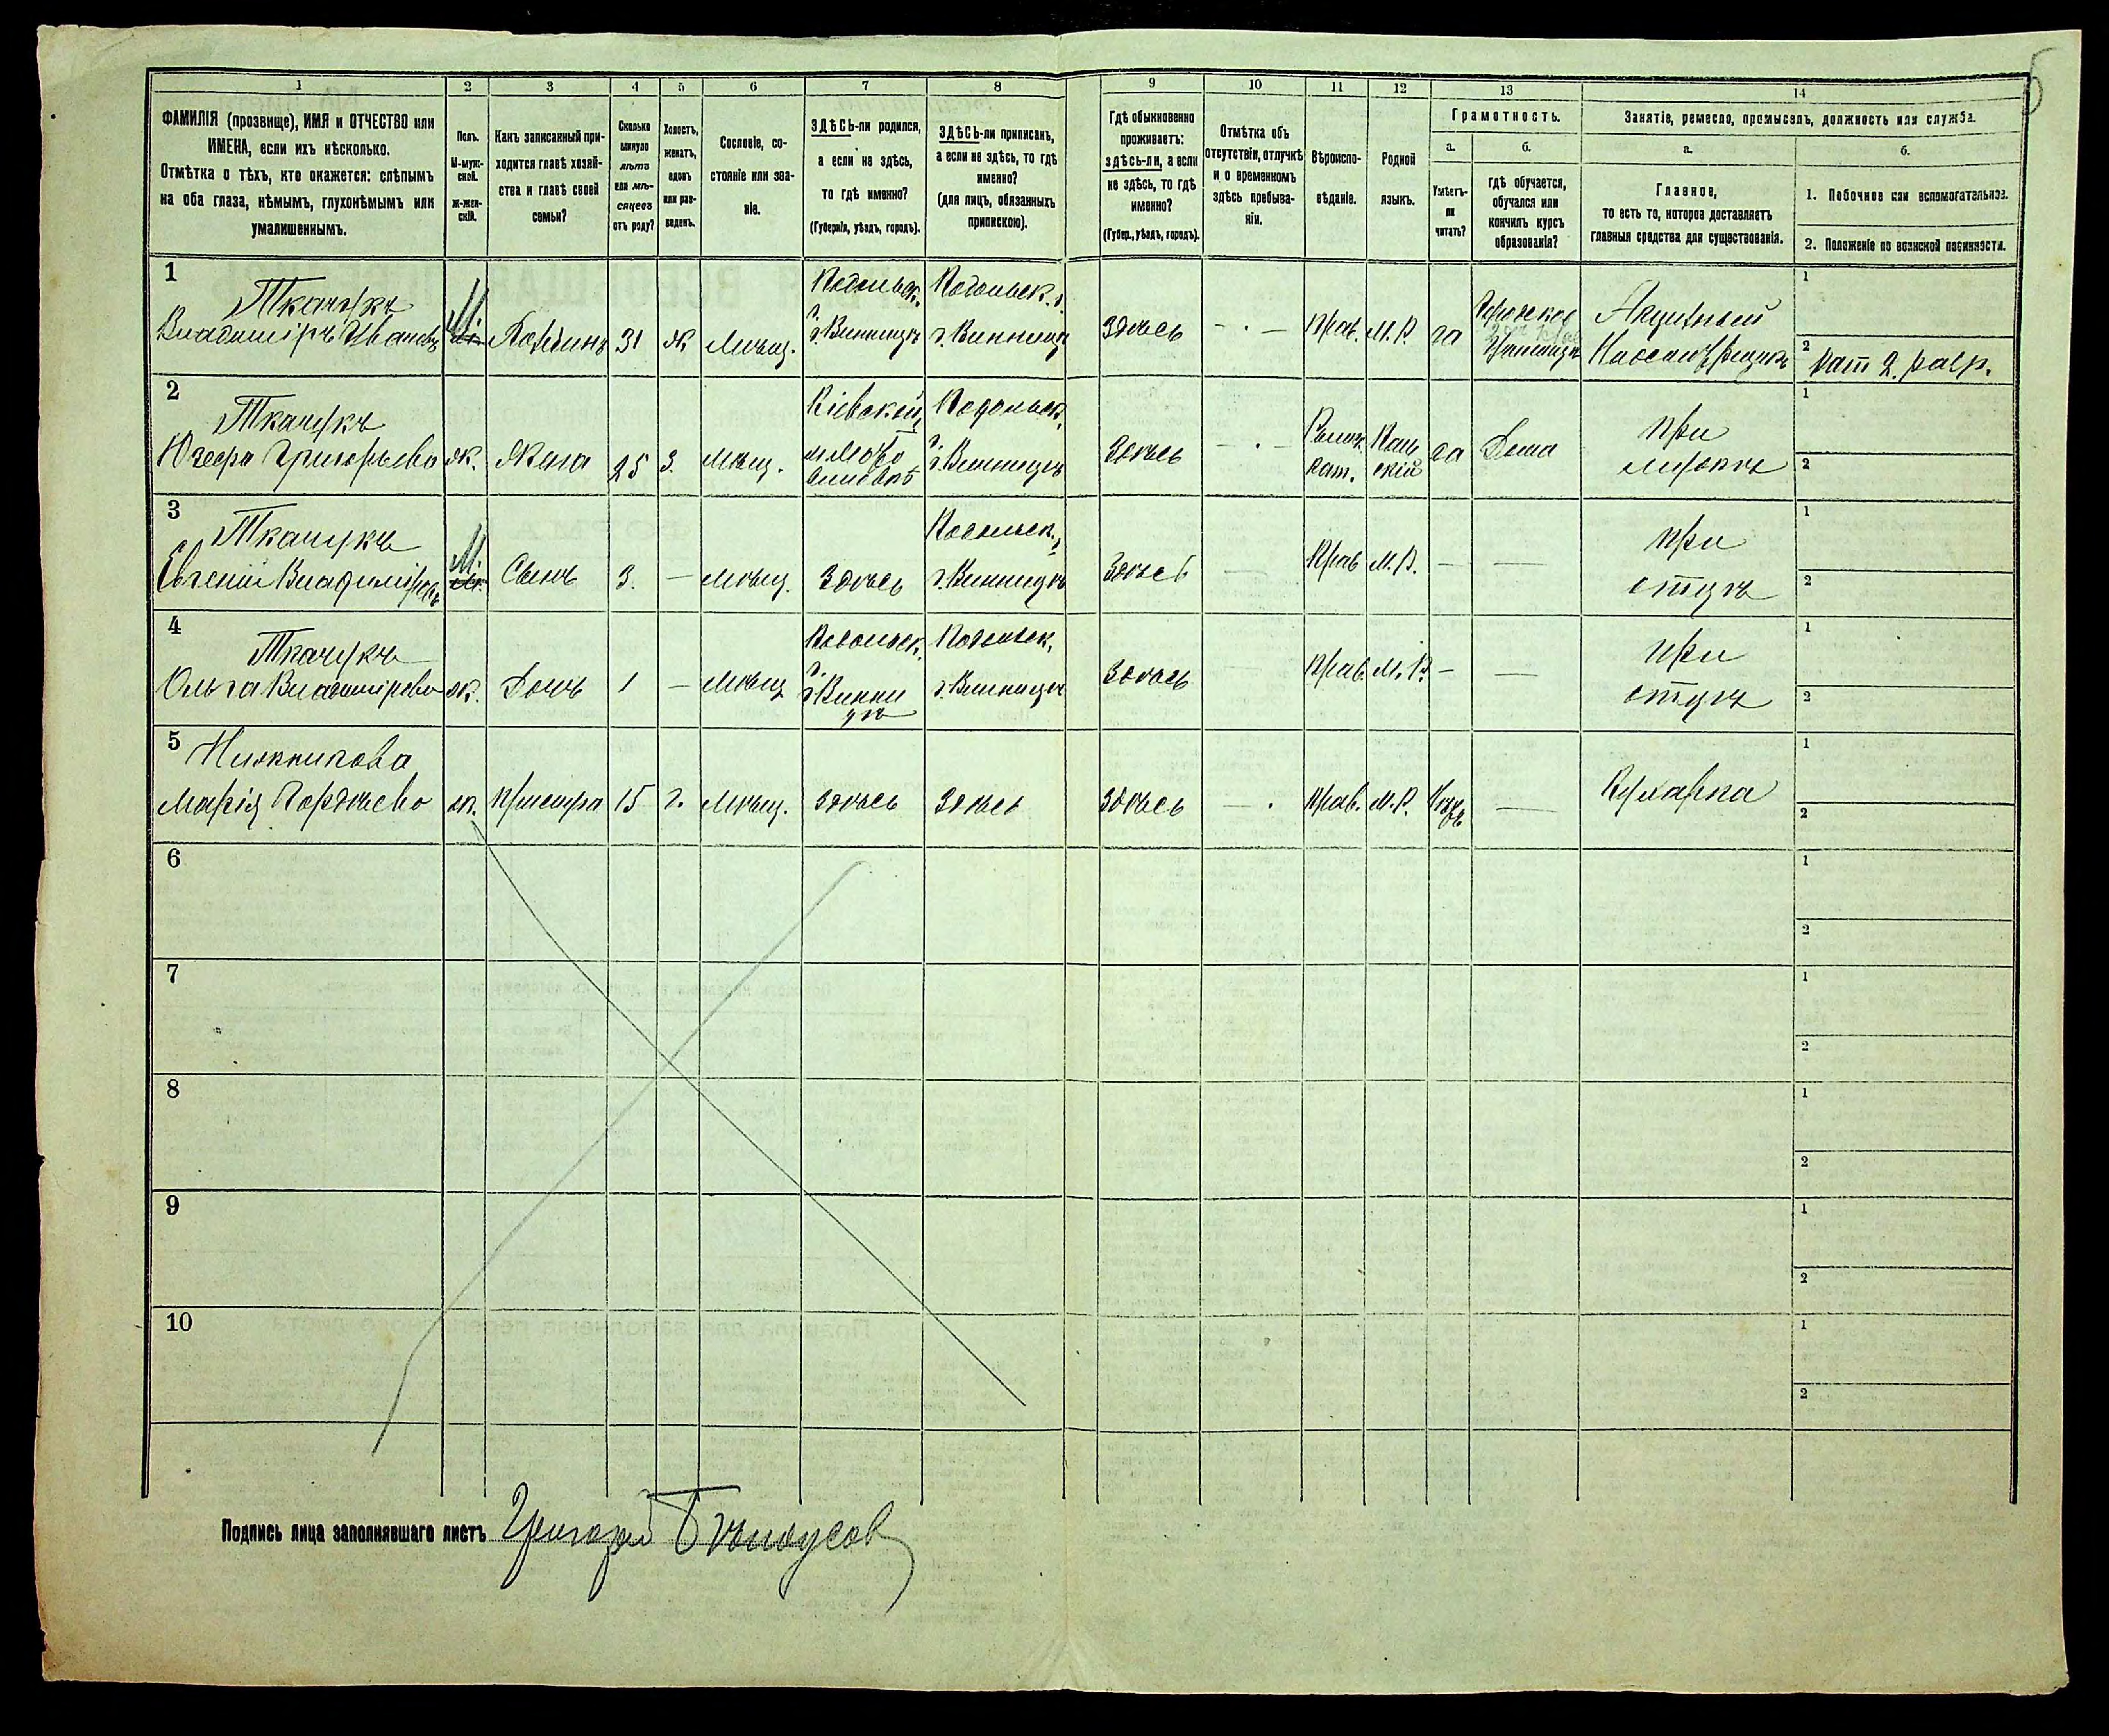 1 2 3 4 5 6 7 8 9 10 11 12 13 14
ФАМИЛІЯ (прозвище), ИМЯ и ОТЧЕСТВО или
ИМЕНА, если ихъ нѣсколько.
Отмѣтка о тѣхъ, кто окажется: слѣпымъ
на оба глаза, нѣмымъ, глухонѣмымъ или
умалишеннымъ.
Полъ.
М-муж-
ской.
Ж-жен-
скій.
Какъ записанный при-
ходится главѣ хозяй-
ства и главѣ своей
семьи?
Сколько
минуло
лѣтъ
или мѣ-
сяцевъ
отъ роду?
Холостъ,
женатъ,
вдовъ
или раз-
веденъ.
Сословіе, со-
стояніе или зва-
ніе.
ЗДѢСЬ-ли родился,
а если не здѣсь,
то гдѣ именно?
(Губернія, уѣздъ, городъ).
ЗДѢСЬ-ли приписанъ,
а если не здѣсь, то гдѣ
именно?
(для лицъ, обязанныхъ
припискою).
Гдѣ обыкновенно
проживаетъ:
здѣсь-ли, а если
не здѣсь, то гдѣ
именно?
(Губер., уѣздъ, городъ).
Отмѣтка объ
отсутствіи, отлучкѣ
и о временномъ
здѣсь пребыва-
ніи.
Вѣроиспо-
вѣданіе.
Родной
языкъ.
Грамотность.
а.
Умѣетъ-
ли
читать?
б.
гдѣ обучается,
обучался или
кончилъ курсъ
образованія?
Занятіе, ремесло, промыселъ, должность или служба.
а.
Главное,
то есть то, которое доставляетъ
главныя средства для существованія.
б.
1. Побочное или вспомогательное.
2. Положеніе по воинской повинности.
1
Ткачукъ
Владиміръ Ивановъ
М.
Хозяинъ
31
Ж
Мѣщ.
Подольск.
г. Винница
Подольск. г.
г. Винница
Здѣсь
Прав.
М. Р.
да
Городское
Акцизный
1
2 рат 2. разр.
2
Ткачукъ
Юзефа Григорьева
ж.
Жена
25
З.
Мѣщ.
Кіевской,
Подольск.
г. Винница
Здѣсь
Римск.
кат.
Поль
скій
да
Дома
При
мужѣ
1
2
3
Ткачукъ
Евгеній Владиміровъ
М.
Сынъ
3.
—
Мѣщ.
Здѣсь
Подольск.,
г. Винница
Здѣсь
Прав
М. Р.
—
—
При
отцѣ
1
2
4
Ткачукъ
Ольга Владимірова
ж.
Дочь
1
—
Мѣщ
Подольск.
г. Винни
цѣ
Подольск.
г. Винница
Здѣсь
Прав.
М. Р.
—
—
При
отцѣ
1
2
5
Марія Гордѣева
ж.
Прислуга
15
Мѣщ.
Здѣсь
Здѣсь
Здѣсь
Прав.
М. Р.
—
Кухарка
1
2
6
1
2
7
1
2
8
1
2
9
1
2
10
1
2
Подпись лица заполнявшаго листъ Григорій Бѣлоусов